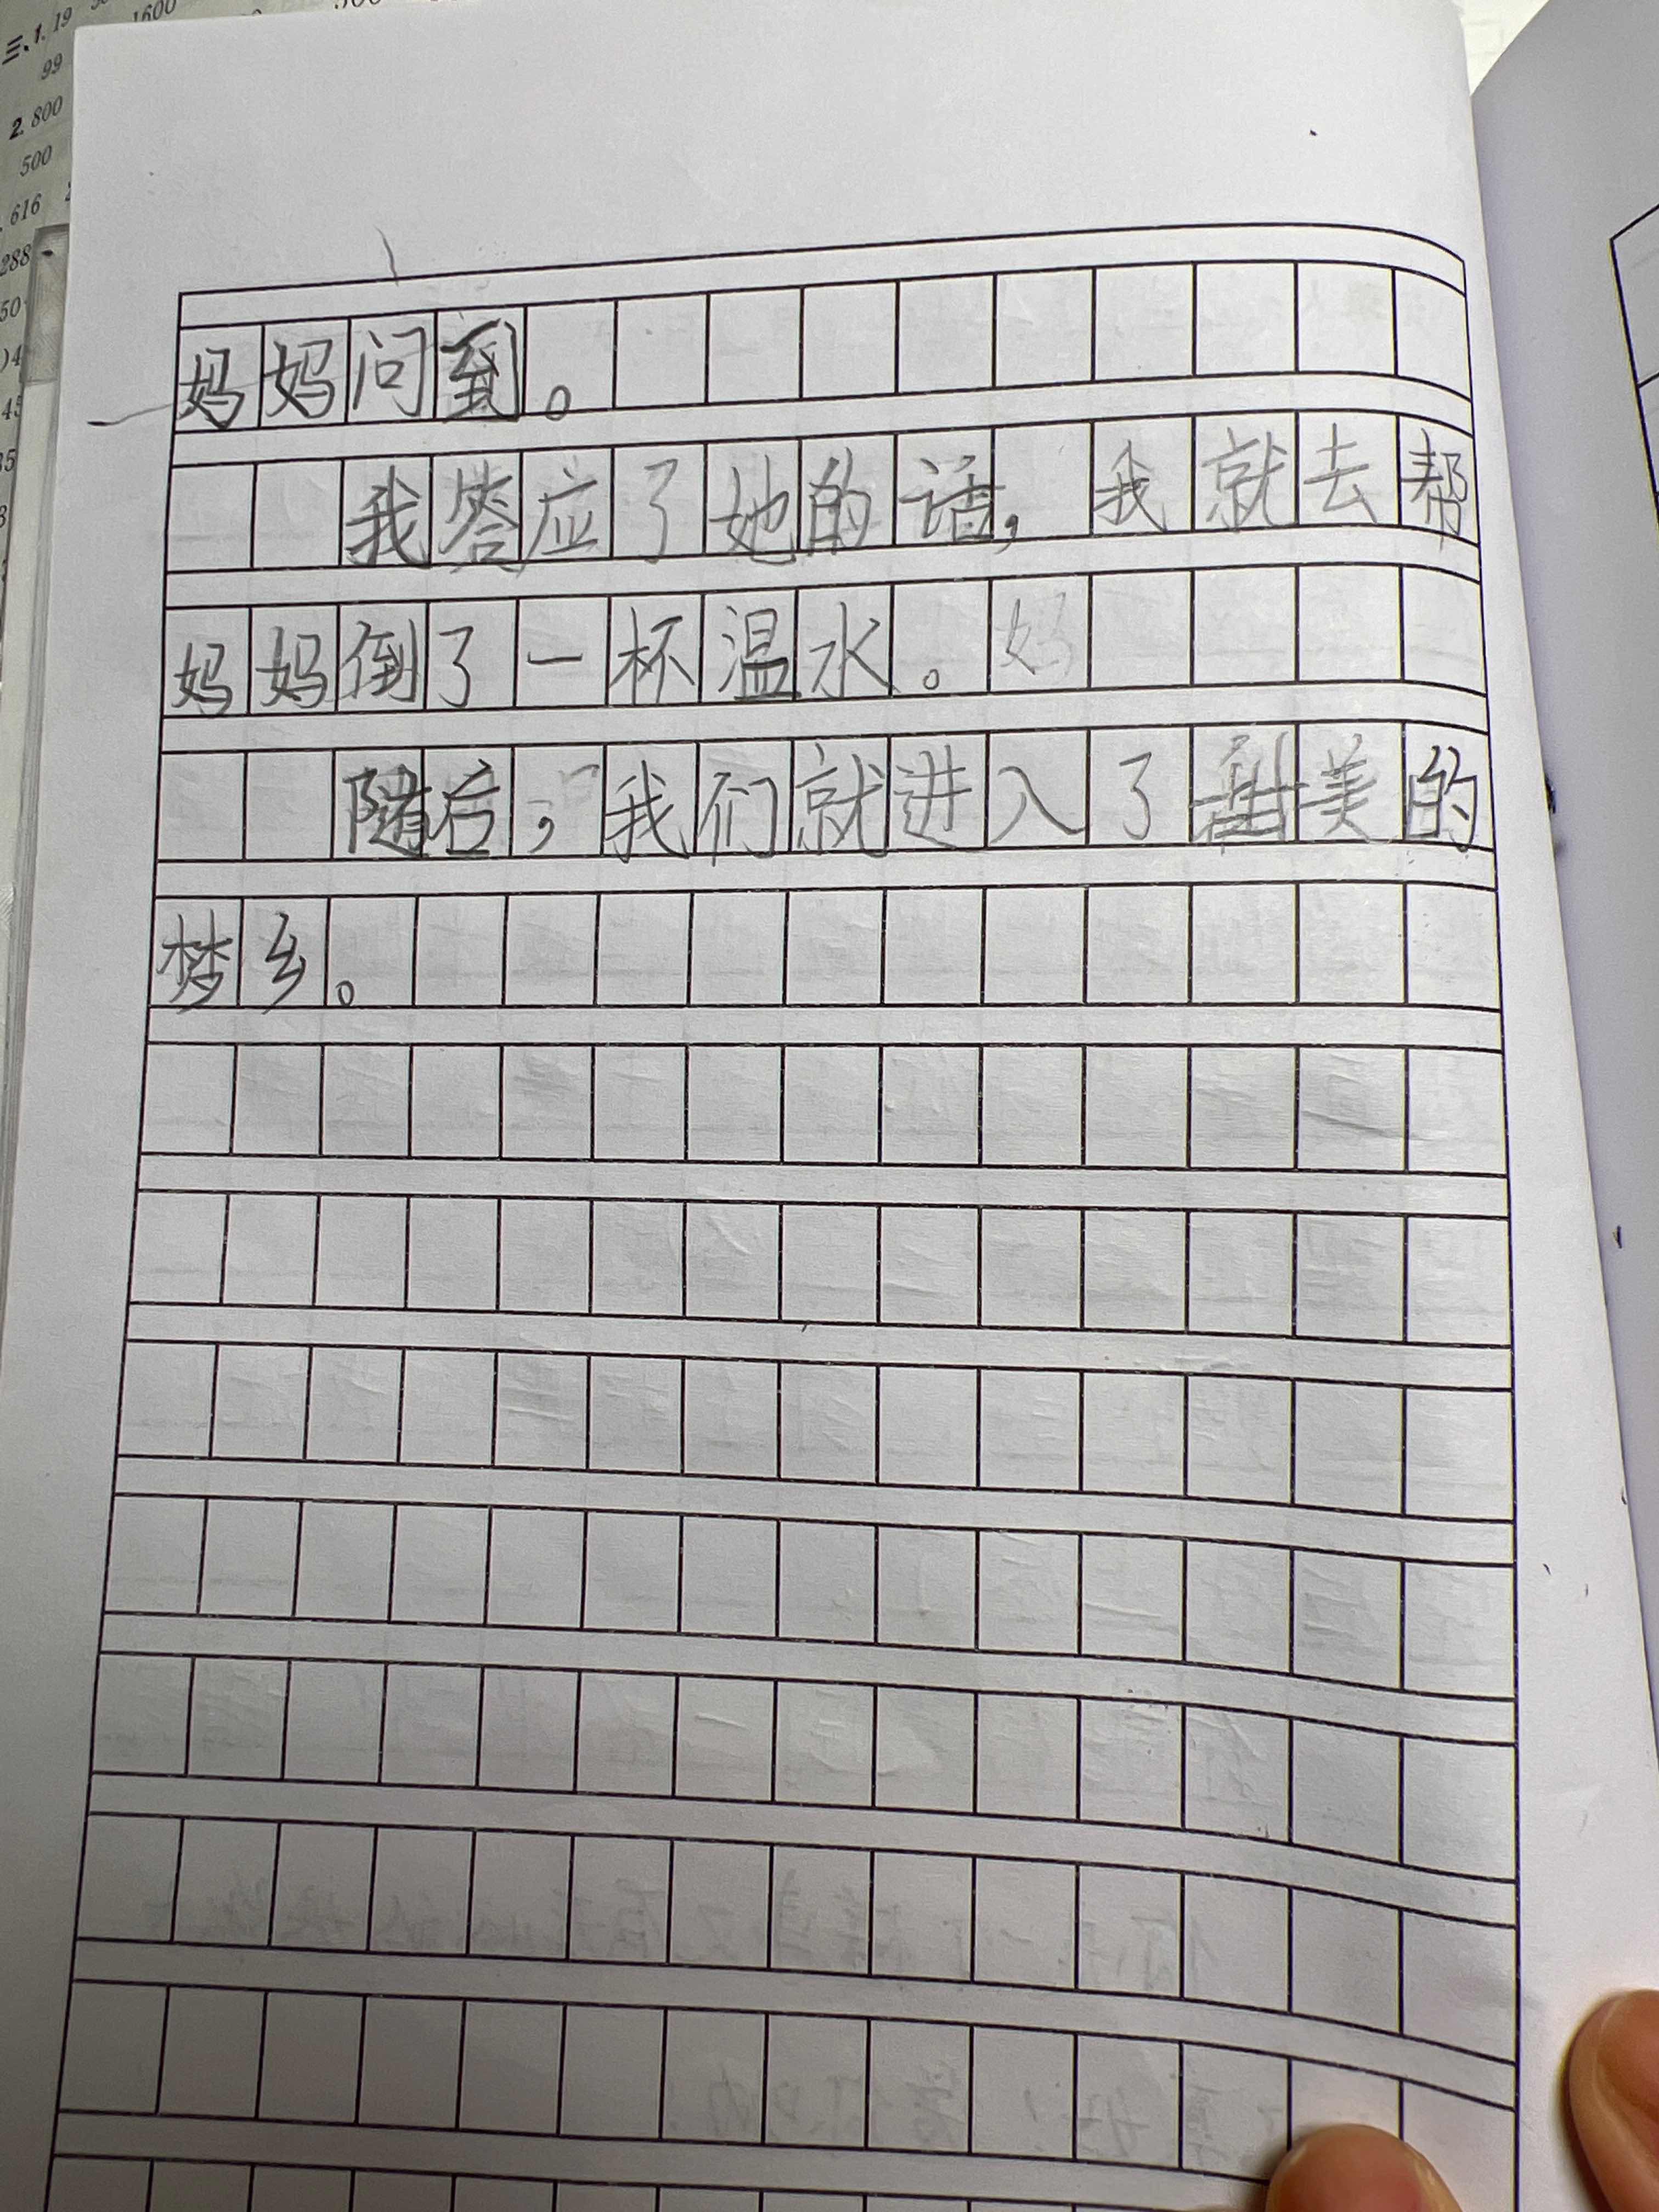 三、1. 19
1600
99
2. 800
500
616
288
妈妈问到。
我答应了她的话，我就去帮
妈妈倒了一杯温水。妈
随后，我们就进入了甜美的
梦乡。